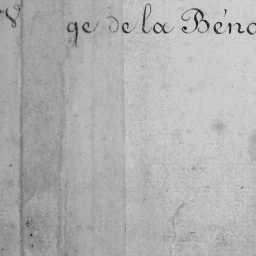 ge de la Béno